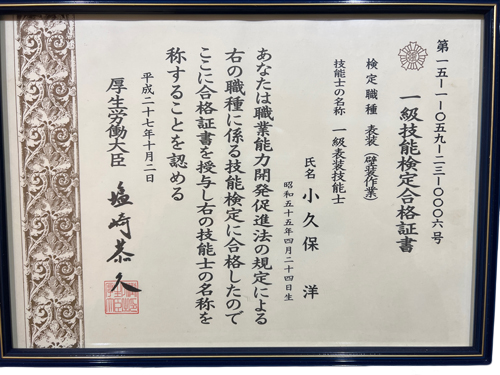 第一五-一-〇五九-二三-〇〇〇六号
一級技能検定合格証書
検定職種 表装(壁装作業)
技能士の名称 一級表装技能士
氏名 小久保 洋
昭和五十五年四月二十四日生
あなたは職業能力開発促進法の規定による
右の職種に係る技能検定に合格したので
ここに合格証書を授与し右の技能士の名称を
称することを認める
平成二十七年十月二日
厚生労働大臣 塩崎恭久